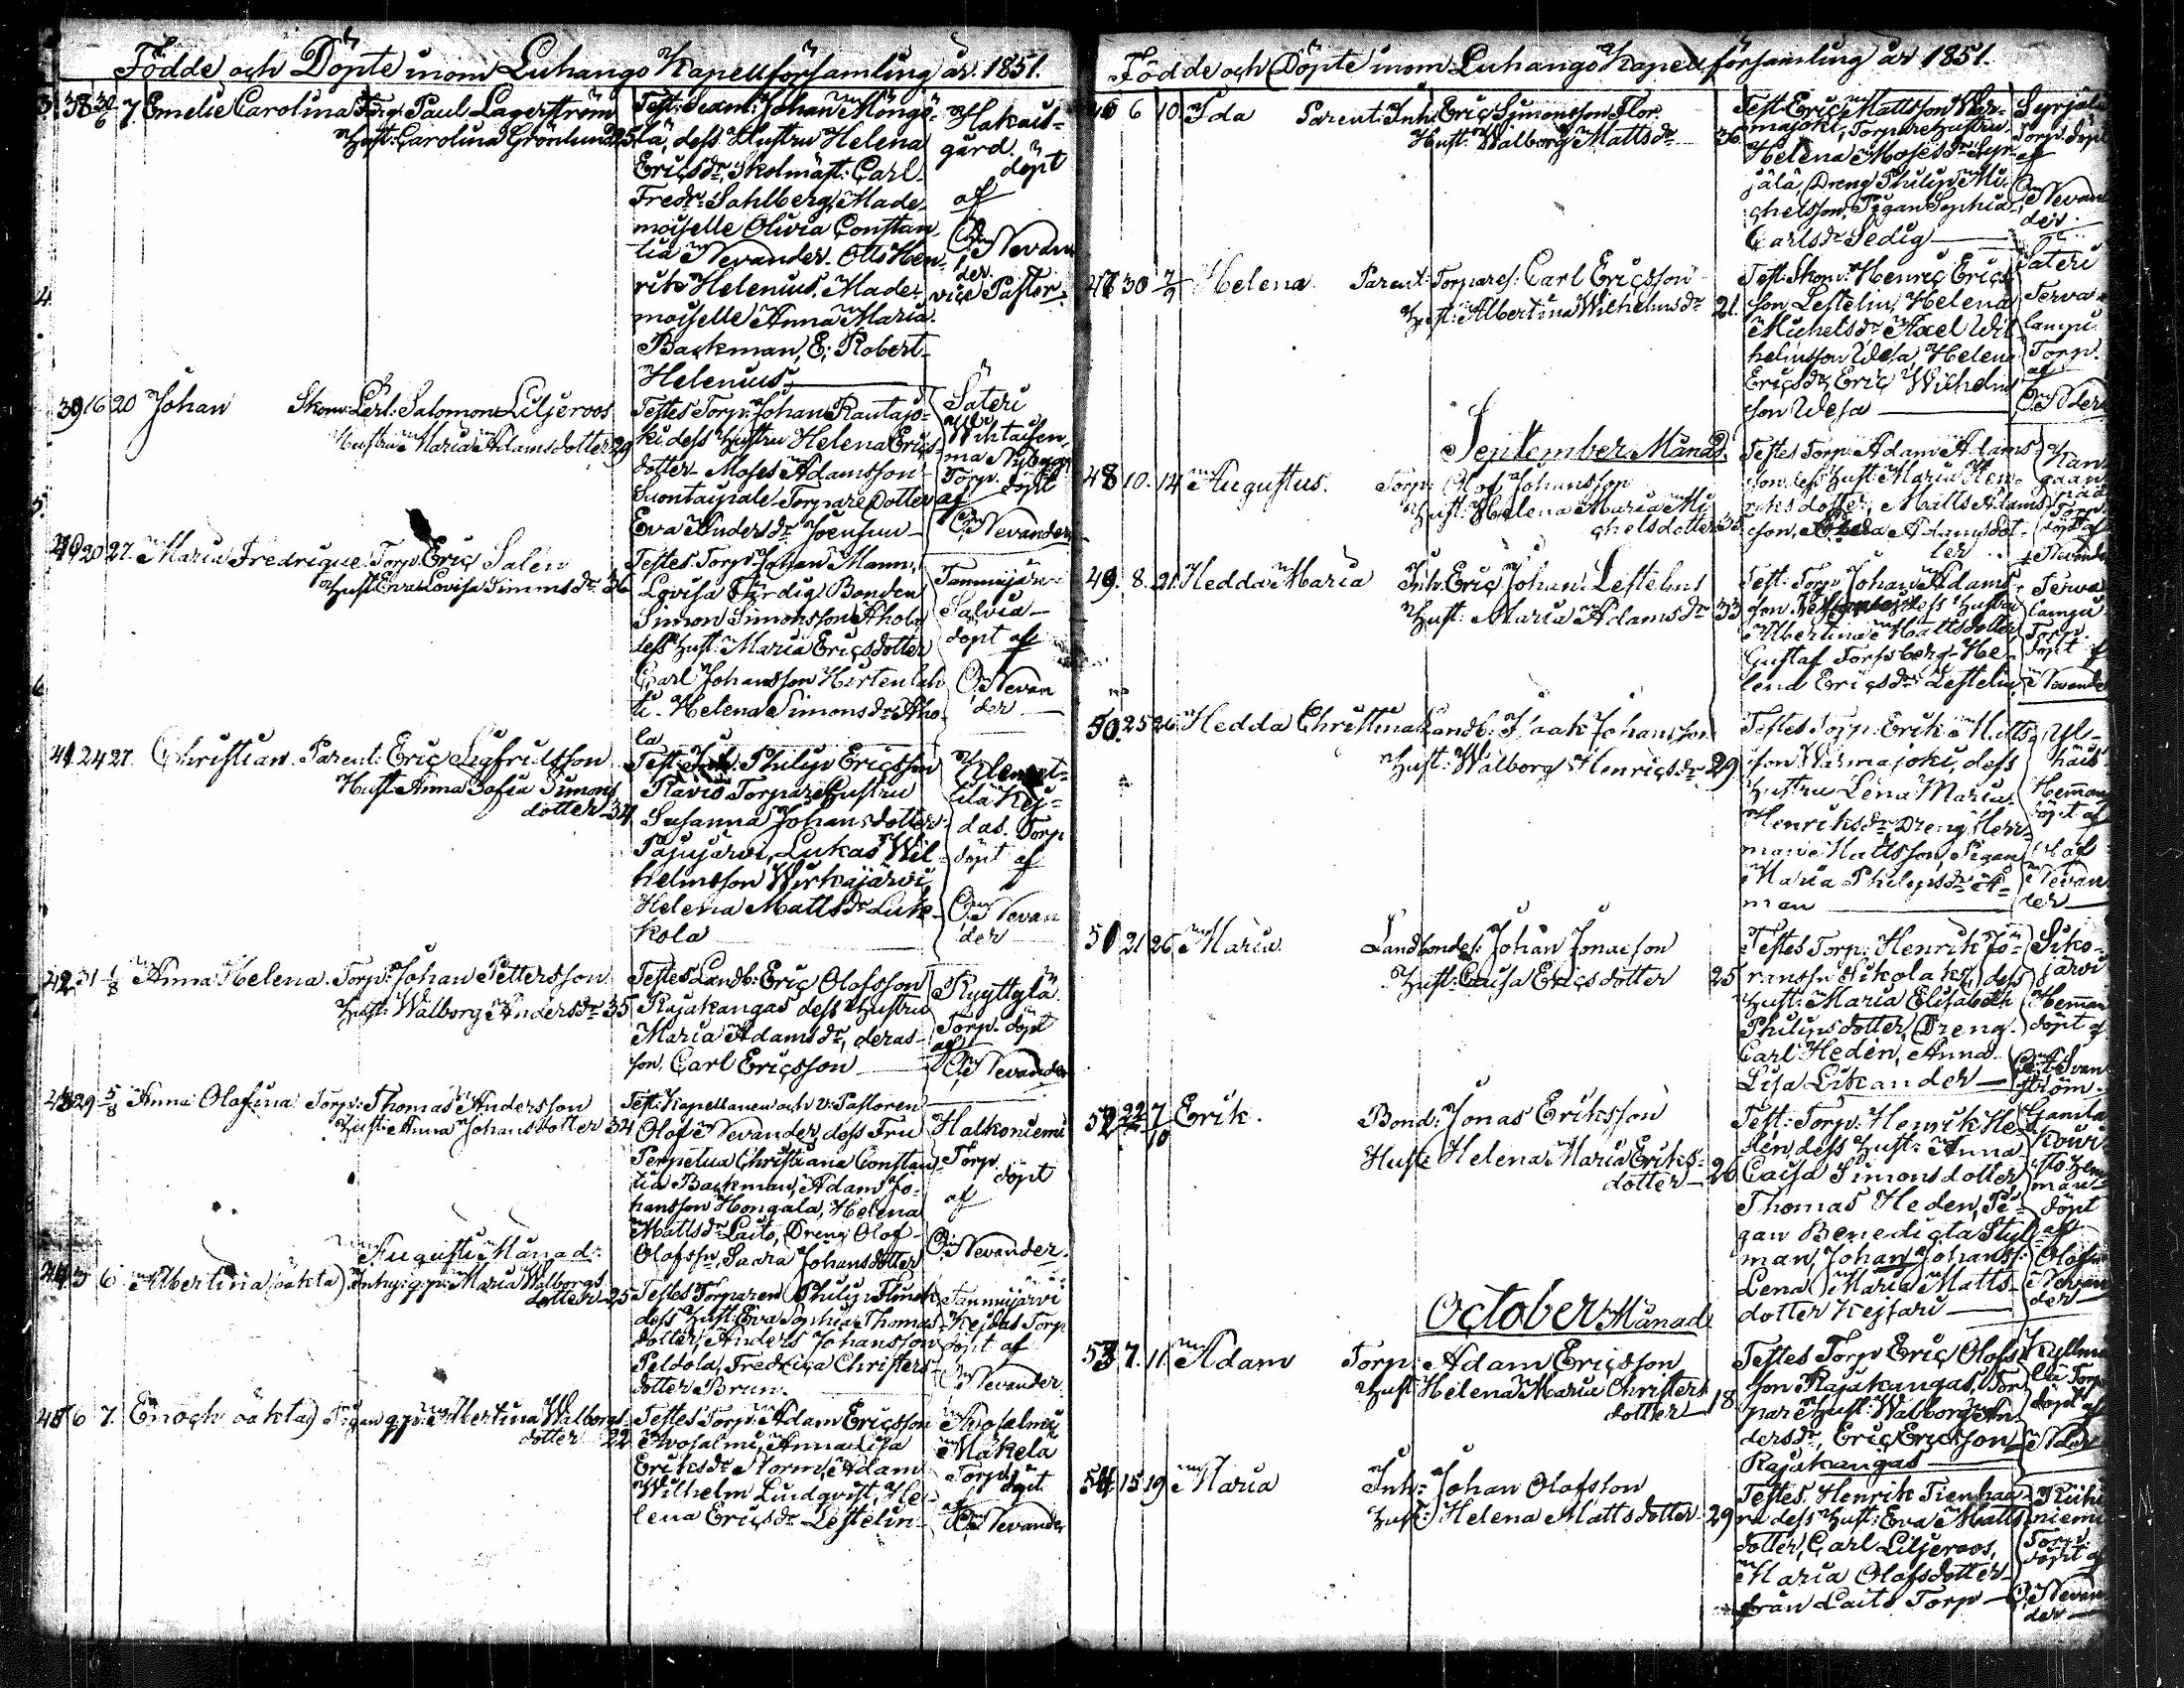 Födde och Döpte inom Luhango Kapellförsamling år 1851.
38 30/6 7. Emelie Carolina Paul Lagerström
Hust: Carolina Grönlund 25
Test: Johan Möngö-
lä, dess Hustru Helena
Ericsdr, Skolmäst: Carl
Fredr: Sahlberg, Made-
moiselle Olivia Constan-
tia Nevander. Otto Hen-
rik Helenius. Made-
moiselle Anna Maria
Backman, E: Robert
Helenius.
gård.
döpt
af
O. Nevan
der
vice Pastor.
39 16 20 Johan Skom: Lerl: Salomon Liljeroos
Hustru Maria Adamsdotter 29
Testes Torp: Johan Rautajo-
ki, dess Hustru Helena Erics-
dotter. Moses Adamsson
Torpare Dotter
Eva Andersdr Joensuu
Säteri
Torp. döpt
af
O. Nevander
40 20 27. Maria Fredrique. Torp. Eric Salen
Hust. Eva Lovisa Simonsdr 36
Testes. Torp: Johan Mann,
Lovisa Färdig, Bonden
Simon Simonsson Ahola
dess Hust: Maria Ericsdotter
Carl Johansson Hirtenlah
ti. Helena Simonsdr Aho-
la
Tammijärvi
Salvia
döpt af
O. Nevan
der
41 24 27. Christian. Parent: Eric Sigfridsson
Hust Anna Sofia Simons
dotter 34
Test: Inh: Philip Ericsson
Flavio Torpare Hustru
Susanna Johansdotter
Pajujärvi, Lukas Wil-
helmsson Wirkajärvi
Helena Mattsdr Luk-
kola
das. Torp
döpt af
O. Nevan
der
42 31 1/8 Anna Helena. Torp: Johan Pettersson
Hust: Walborg Andersdr 35
Testes Landb: Eric Olofsson
Rajakangas dess Hustru
Maria Adamsdr, deras
son, Carl Ericsson
Kyttylä
Torp. döpt
af
O. Nevander
43 29 5/8 Anna Olafina Torp: Thomas Andersson
Hust: Anna Johansdotter 34
Test: Kapellanen och v: Pastoren
Olof Nevander, dess Fru
Perpetua Christiana Constan-
tia Backman, Adam Jo-
hansson Hongala, Helena
Mattsdr Laito, Dreng Olof
Olofssn, Saara Johansdotter
Halkoniemi
Torp
döpt
af
O. Nevander.
Augusti Månad.
44 3 6 Albertina (oäkta) Inhy: qp: Maria Walborgs
dotter 25
Testes Torparen Philip Flinck
dess Hust: Eva Sophia Thomas-
dotter, Anders Johansson
Peldola, Fredrica Christers-
dotter Brun.
Tammijärvi
Keidas Torp
döpt af
O. Nevander
45 6 7. Enoch oäkta) Pigan qp: Albertina Walborgs
dotter 22
Testes Torp: Adam Ericsson
Avosalmi, Anna Lisa
Eriksdr Norm, Adam
Wilhelm Lindqvist, He-
lena Ericsdr Lestelin
Avosalmi
Mäkelä
Torp döpt
af
O. Nevander
Födde och Döpte inom Luhango Kapellförsamling år 1851.
46 6 10. Ida Parent: Inh: Eric Simonsson Flor.
Hust: Walborg Mattsdr 36.
Test: Eric Mattsson War-
majoki, Torpare hustru
Helena Mosesdr Syr-
jälä, Dreng Philip Mi-
chelsson, Pigan Sophia
Carlsdr Sedig
Syrjälä
Torp. döpt
af
O. Nevan
der
47 30 7/9 Helena Parent: Torpares: Carl Ericsson
Hust: Albertina Wilhelmsdr 21.
Test: Skom: Henric Erics-
son Lestelin, Helena
Michelsdr Axel Wil
helmsson Wesa, Helena
Ericsdr, Eric Wilhelms
son Wesa
Säteri
Terva-
lampi
Torp.
af
September Månad.
48 10. 14 Augustus. Torp: Olof Johansson
Hust: Helena Maria Mi-
chelsdotter
Testes Torp: Adam Adams-
son, dess Hust: Maria Hen-
riksdotter, Matts Adams
son, Adamsdot-
ter
Torp.
döpt af
49. 8. 21. Hedda Maria Inh: Eric Johan Lestelin
Hust: Maria Adamsdr 33
Test: Torp: Johan Adams-
son dess Hustru
Albertina Mattsdotter
Gustaf Forssberg. He-
lena Ericsdr Lestelin
Terva
lampi
Torp.
döpt af
Nevander
50. 25 26 Hedda Christina Landb: Isaak Johansson
Hust: Walborg Henricsdr 29
Testes Torp: Erik Matts-
son Warmajoki, dess
Hustru Lena Maria
Henriksdr, Dreng Herr-
man Mattsson, Pigan
Maria Philipsdr Å-
man
Hemman
döpt af
Olof
Nevan
der
51 21 26 Maria Landbondes: Johan Jonasson
Hust: Caisa Ericsdotter 25
Testes Torp: Henrik Jö-
ranssn Sikolaks, dess
Hust: Maria Elisabeth
Philipsdotter, Dreng
Carl Hedén, Anna
Lisa Likander
järvi
Hemman
döpt af
Svan
ström.
52 22 7/10 Erik. Bond: Jonas Eriksson
Hust: Helena Maria Eriks-
dotter 26
Test: Torp: Henrik He-
den, dess Hust: Anna
Caisa Simonsdotter
Thomas Heden, Pi-
gan Benedicta Styl-
man, Johan Johanss:
Lena Maria Matts-
dotter Keisari
Gamla
döpt
af
Olof
Nevan
der
October Månad
53 7. 11. Adam Torp: Adam Ericsson
Hust: Helena Maria Christers
dotter 18
Testes Torp Eric Olofs-
son Rajakangas, Tor-
pare Hust: Walborg An-
dersdr, Eric Ericsson
Rajakangas
Torp
döpt af
54 15 19 Maria Inh: Johan Olofsson
Hust: Helena Mattsdotter 29
Testes. Henrik Tienhaa-
ra dess Hust: Eva Matts
dotter, Carl Liljeroos,
Maria Olofsdotter
från Laito Torp
Riihi
niemi
Torp.
döpt af
O. Nevan
der